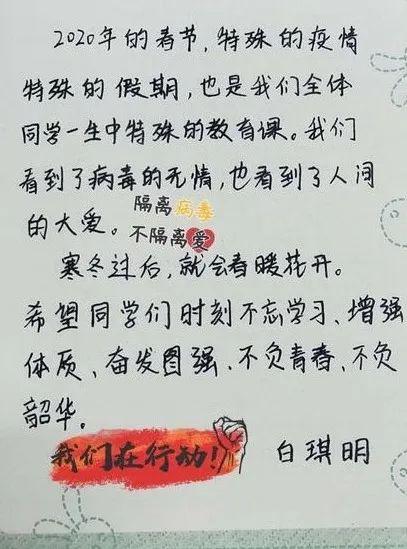 2020年的春节，特殊的疫情
特殊的假期，也是我们全体
同学一生中特殊的教育课。我们
看到了病毒的无情，也看到了人间
的大爱。
隔离病毒
不隔离爱
寒冬过后，就会春暖花开。
希望同学们时刻不忘学习、增强
体质、奋发图强、不负青春、不负
韶华。
我们在行动！
白琪明